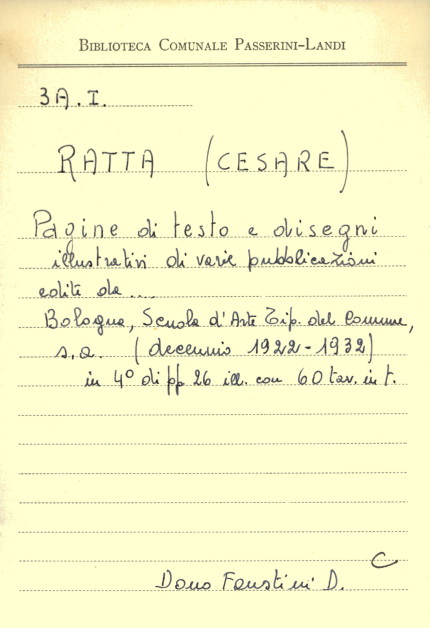 BIBLIOTECA COMUNALE PASSERINI-LANDI
3A.I.
RATTA (CESARE)
Pagine di testo e disegni
illustrativi di varie pubblicazioni
edite da....
Bologna, Scuola d'Arte Tip. del Comune,
s.a. (decennio 1922-1932)
in 4° di pp 26 ill. con 60 tav. in t.
C
Dono Faustini D.